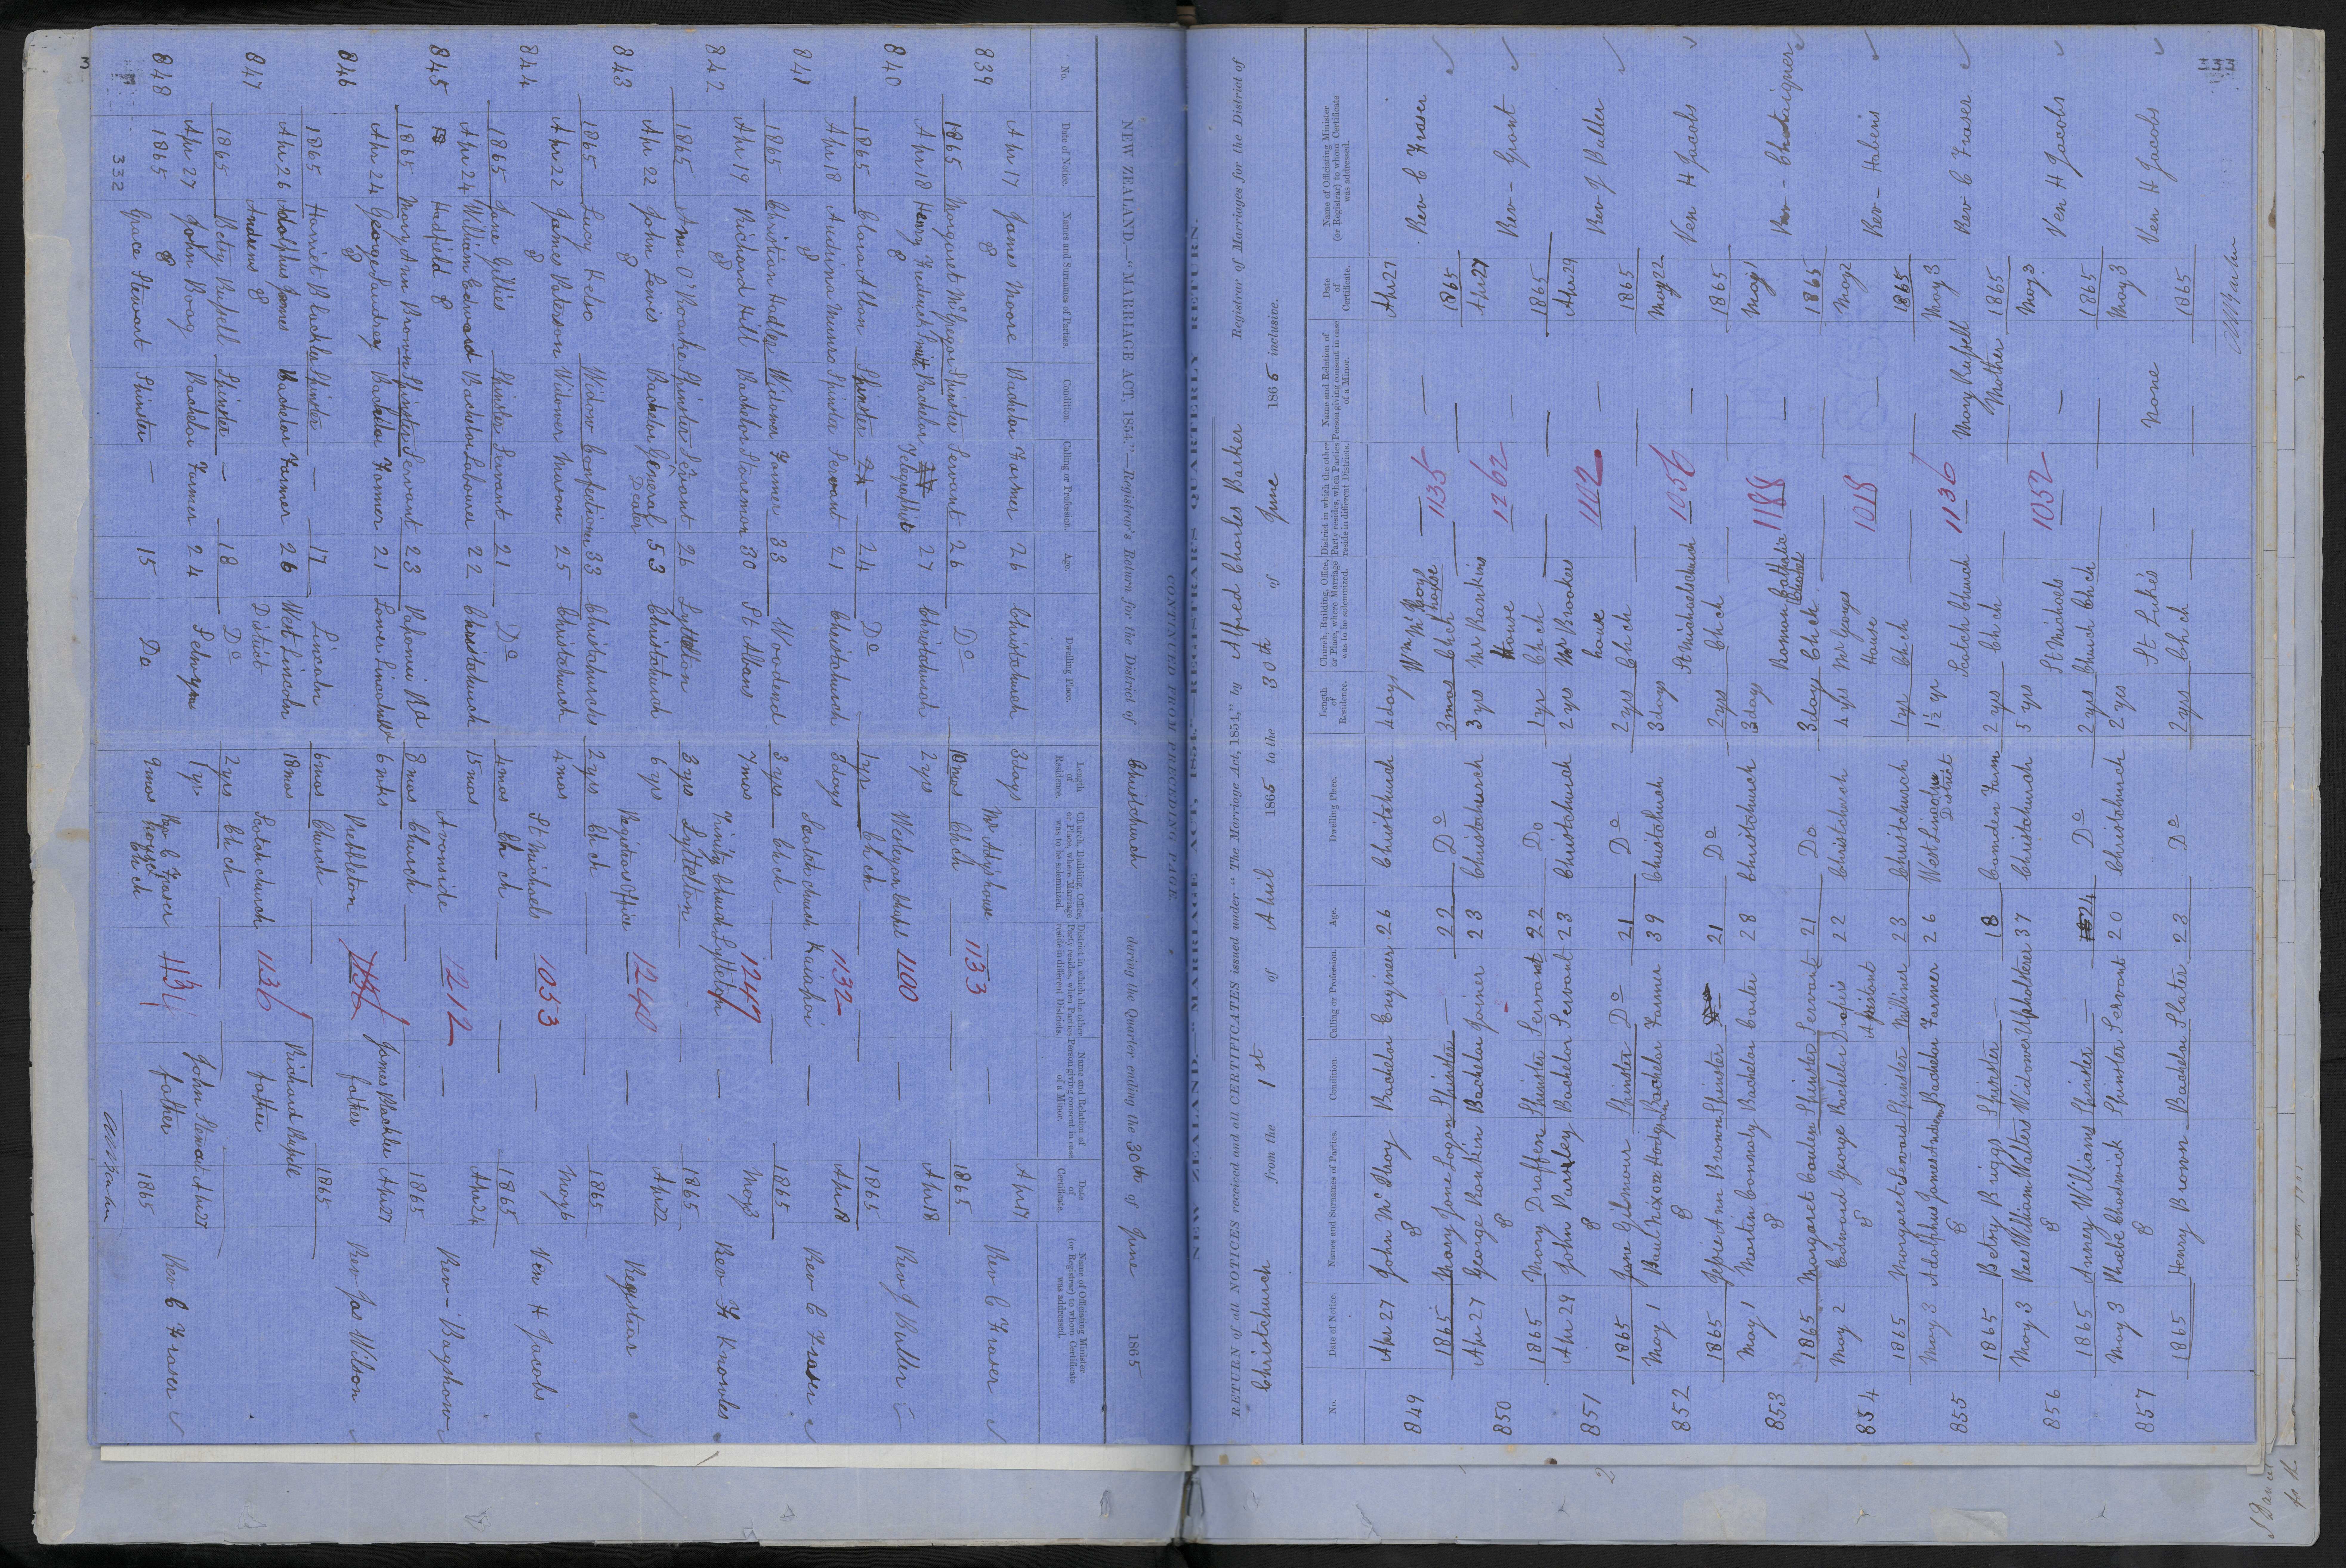 NEW ZEALAND.—"MARRIAGE ACT, 1854."—Registrar's Return for the District of Christchurch during the Quarter ending the 30th of June 1865
No. Date of Notice. Names and Surnames of Parties. Condition. Calling or Profession. Age. Dwelling Place. Length of Residence. Church, Building, Office, or Place, where Marriage was to be solemnized. District in which the other Party resides, when Parties reside in different Districts. Name and Relation of Person giving consent in case of a Minor. Date of Certificate. Name of Officiating Minister (or Registrar) to whom Certificate was addressed.
839 Apr 17 James Moore Bachelor Farmer 26 Christchurch 3 days house 1133 — Apr 17 Rev C Fraser
&
1865 Margaret McGregor Spinster Servant 26 Do 10 mos Ch ch — 1865
840 Apr 18 Henry Frederick Smith Bachelor 27 Christchurch 2 yrs Wesleyan Chapel 1100 — Apr 18 Rev J Buller
&
1865 Clara Allon Spinster — 24 Do 1 yr Ch ch — 1865
841 Apr 18 Munro Spinster Servant 21 Christchurch 8 days Scotch church Kaiapoi 1132 — Apr 18 Rev C Fraser
&
1865 Christian Hadley Widower Farmer 33 Woodend 3 yrs Ch ch — 1865
842 Apr 19 Richard Hill Bachelor Storeman 30 St Albans 7 mos Trinity Church Lyttelton Lyttelton 1247 — May 3 Rev F Knowles
&
1865 Ann O'Roarke Spinster Servant 26 Lyttelton 3 yrs Lyttelton 1865
843 Apr 22 John Lewis Bachelor General Dealer 53 Christchurch 6 yrs Registrars Office 1240 — Apr 22 Registrar
&
1865 Lucy Kelso Widow Confectioner 33 Christchurch 2 yrs Ch ch — 1865
844 Apr 22 James Paterson Widower Mason 25 Christchurch 4 mos St Michaels 1053 — May 6 Ven H Jacobs
&
1865 Jane Gillies Spinster Servant 21 Do 4 mos Ch ch — 1865
845 Apr 24 William Edward Bachelor Labourer 22 Christchurch 15 mos Avonside 1212 — Apr 24 Rev —
Hadfield &
1865 Mary Ann Brown Spinster Servant 23 Papanui Rd 8 mos Church — 1865
846 Apr 24 George Bachelor Farmer 21 Lower Lincoln Rd 6 wks Prebbleton father Apr 27 Rev Jas Wilson
&
1865 Harriet Spinster — 17 Lincoln 6 mos Church — 1865
847 Apr 26 Adolphus James Bachelor Farmer 26 West Lincoln District 18 mos Scotch church 1136 Richard Russell father
Andrews &
1865 Betsy Russell Spinster — 18 Do 2 yrs Ch ch —
848 Apr 27 John Boag Bachelor Farmer 24 Selwyn 1 yr Rev C Fraser house John Stewart father Apr 27 Rev C Fraser
&
1865 Grace Stewart Spinster — 15 Do 9 mos Ch ch 1865
332
CONTINUED FROM PRECEDING PAGE.
NEW ZEALAND.—"MARRIAGE ACT, 1854."—REGISTRAR'S QUARTERLY RETURN.
RETURN of all NOTICES received and all CERTIFICATES issued under "The Marriage Act, 1854," by Alfred Charles Barker Registrar of Marriages for the District of
Christchurch from the 1st of April 1865 to the 30th of June 1865 inclusive.
No. Date of Notice. Names and Surnames of Parties. Condition. Calling or Profession. Age. Dwelling Place. Length of Residence. Church, Building, Office, or Place, where Marriage was to be solemnized. District in which the other Party resides, when Parties reside in different Districts. Name and Relation of Person giving consent in case of a Minor. Date of Certificate. Name of Officiating Minister (or Registrar) to whom Certificate was addressed.
849 Apr 27 John McIlroy Bachelor Engineer 26 Christchurch 4 days house 1135 — Apr 27 Rev C Fraser
&
1865 Mary Jane Logan Spinster — 22 Do 3 mos Ch ch — 1865
850 Apr 27 George Rankin Bachelor Joiner 23 Christchurch 3 yrs Mr Rankins House 1262 — Apr 27 Rev — Grant
&
1865 Mary Draffen Spinster Servant 22 Do 1 yr Ch ch — 1865
851 Apr 29 John Parsley Bachelor Servant 23 Christchurch 2 yrs Mr Brookes house 1102 — Apr 29 Rev J Buller
&
1865 Jane Gilmour Spinster Do 21 Do 2 yrs Ch ch — 1865
852 May 1 Paul Nixon Hodgson Bachelor Farmer 39 Christchurch 3 days St Michaels church 1056 — May 22 Ven H Jacobs
&
1865 Jessie Ann Brown Spinster — 21 Do 2 yrs Ch ch — 1865
853 May 1 Martin Connoly Bachelor Carter 28 Christchurch 3 days Roman Catholic Chapel 1188 — May 1 Rev — Chataigner
&
1865 Margaret Conlen Spinster Servant 21 Do 3 days Ch ch — 1865
854 May 2 Edward George Bachelor Drapers Assistant 22 Christchurch 4 yrs Mr Georges House 1018 — May 2 Rev — Habens
&
1865 Margaret Seward Spinster Milliner 23 Christchurch 1 yr Ch ch — 1865
855 May 3 Adolphus James Andrews Bachelor Farmer 26 West Lincoln District 1½ yr Scotch Church 1136 Mary Russell Mother May 3 Rev C Fraser
&
1865 Betsy Briggs Spinster — 18 Camden Farm 2 yrs Ch ch — 1865
856 May 3 Rees William Walters Widower Upholsterer 37 Christchurch 5 yrs St Michaels 1052 — May 3 Ven H Jacobs
&
1865 Anney Williams Spinster — 24 Do 2 yrs Church Ch ch — 1865
857 May 3 Phoebe Chadwick Spinster Servant 20 Christchurch 2 yrs St Lukes — None May 3 Ven H Jacobs
&
1865 Henry Brown Bachelor Slater 23 Do 2 yrs Ch ch — 1865
333